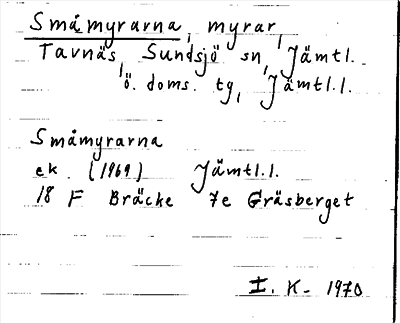 Småmyrarna, myrar,
Tavnäs, Sundsjö sn, Jämtl.
ö. doms. tg, Jämtl.l.
Småmyrarna
ek. (1969) Jämtl.l.
18 F Bräcke 7e Gräsberget
I. K. 1970